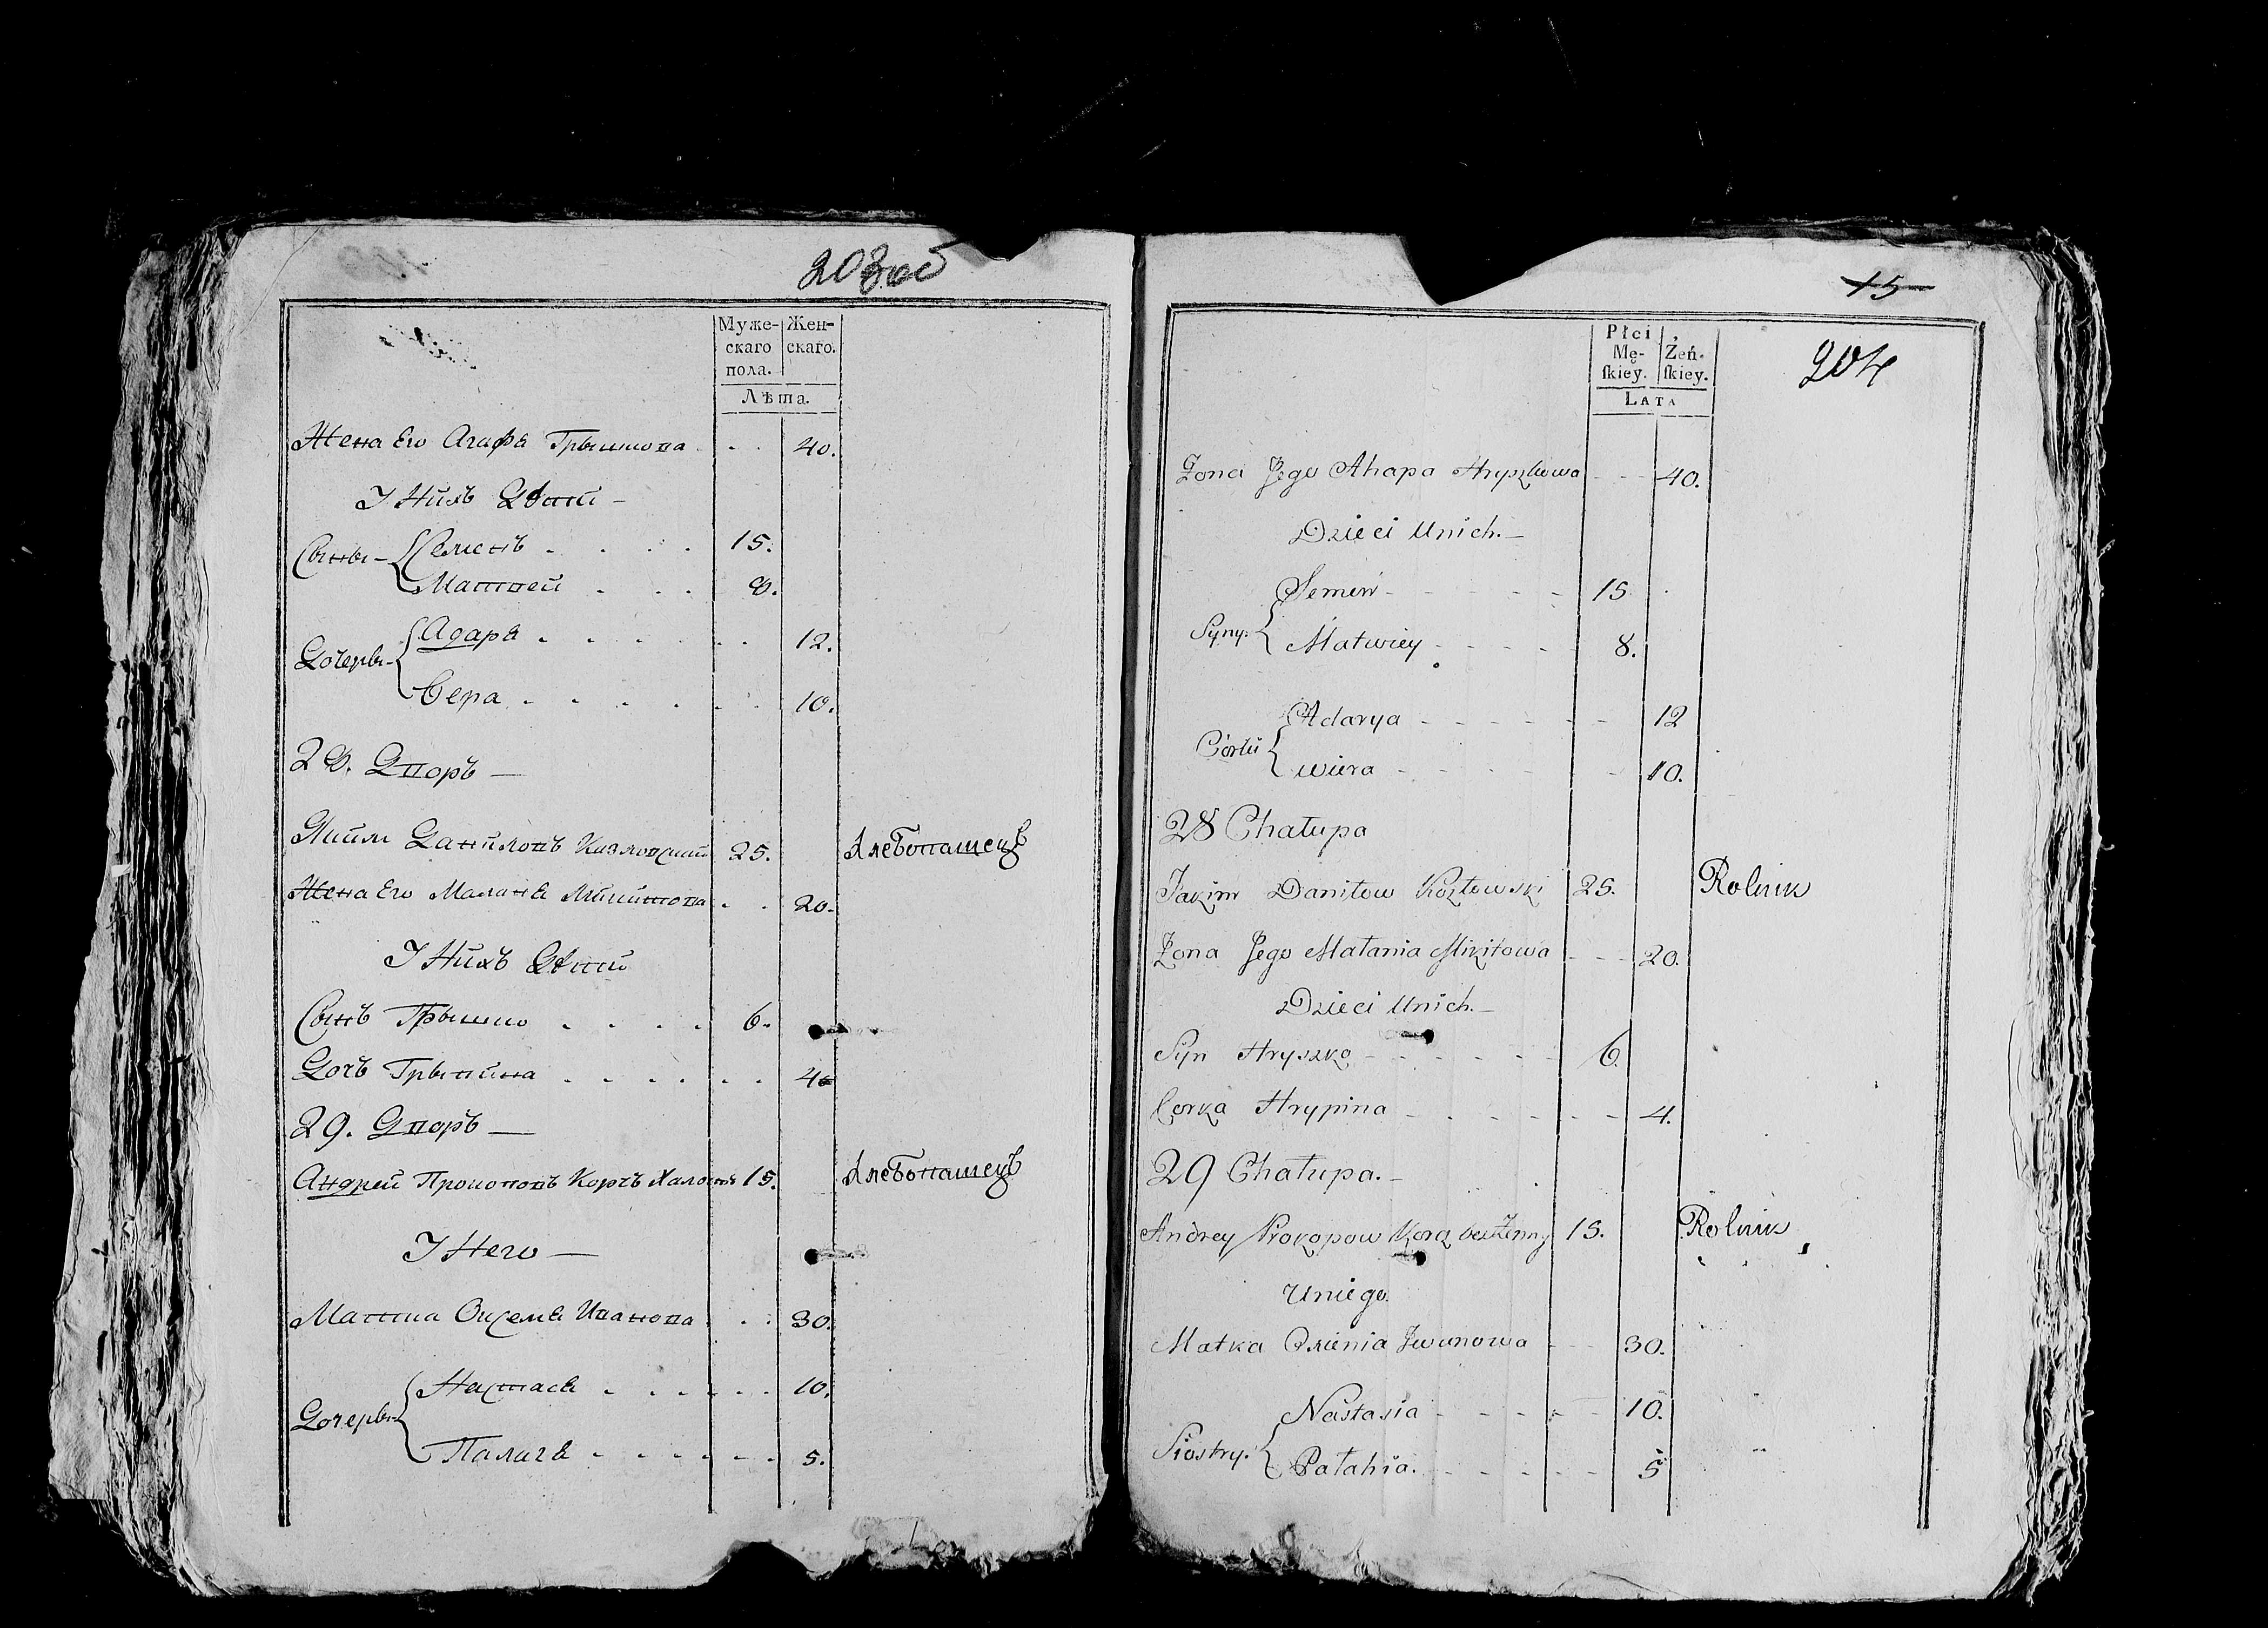 203 об
Муже-
скаго
пола.
Жен-
скаго.
Лѣта.
Жена Его Агафѣ Грышкова 40.
У Нихъ Дѣти
Сыны
Семенъ 15.
Матвей 8.
Дочеры
Адарѣ 12.
Вера 10.
28. Дворъ
Якимъ Даниловъ Козловский 25. Хлебопашецъ
Жена Его Маланѣ Микитова 20.
У Нихъ Дѣти
Сынъ Грышко 6.
Дочъ Грыпина 4
29. Дворъ
Андрей Прокоповъ Корчъ Халостъ 15. Хлебопашецъ
У Него
Матка Оксемѣ Иванова 30.
Дочеры
Настасѣ 10.
Палагѣ 5.
15
204
Płci
Mę-
skiey.
Żeń-
skiey.
Lata
Zona Jego Ahapa Hryszkowa 40.
Dzieci Unich.
Syny:
Semen 15
Matwiey 8.
Córki
Adarya 12
Wiera 10.
28 Chałupa
Jakim Daniłow Kozłowski 25. Rolnik
Zona Jego Małania Mikitowa 20.
Dzieci Unich.
Syn Hryszko 6.
Corka Hrypina 4.
29 Chałupa.
Andrey Prokopow Korcz bezżenny 15. Rolnik
Uniego.
Matka Iwanowa 30.
Siostry:
Nastasia 10.
Pałahia. 5